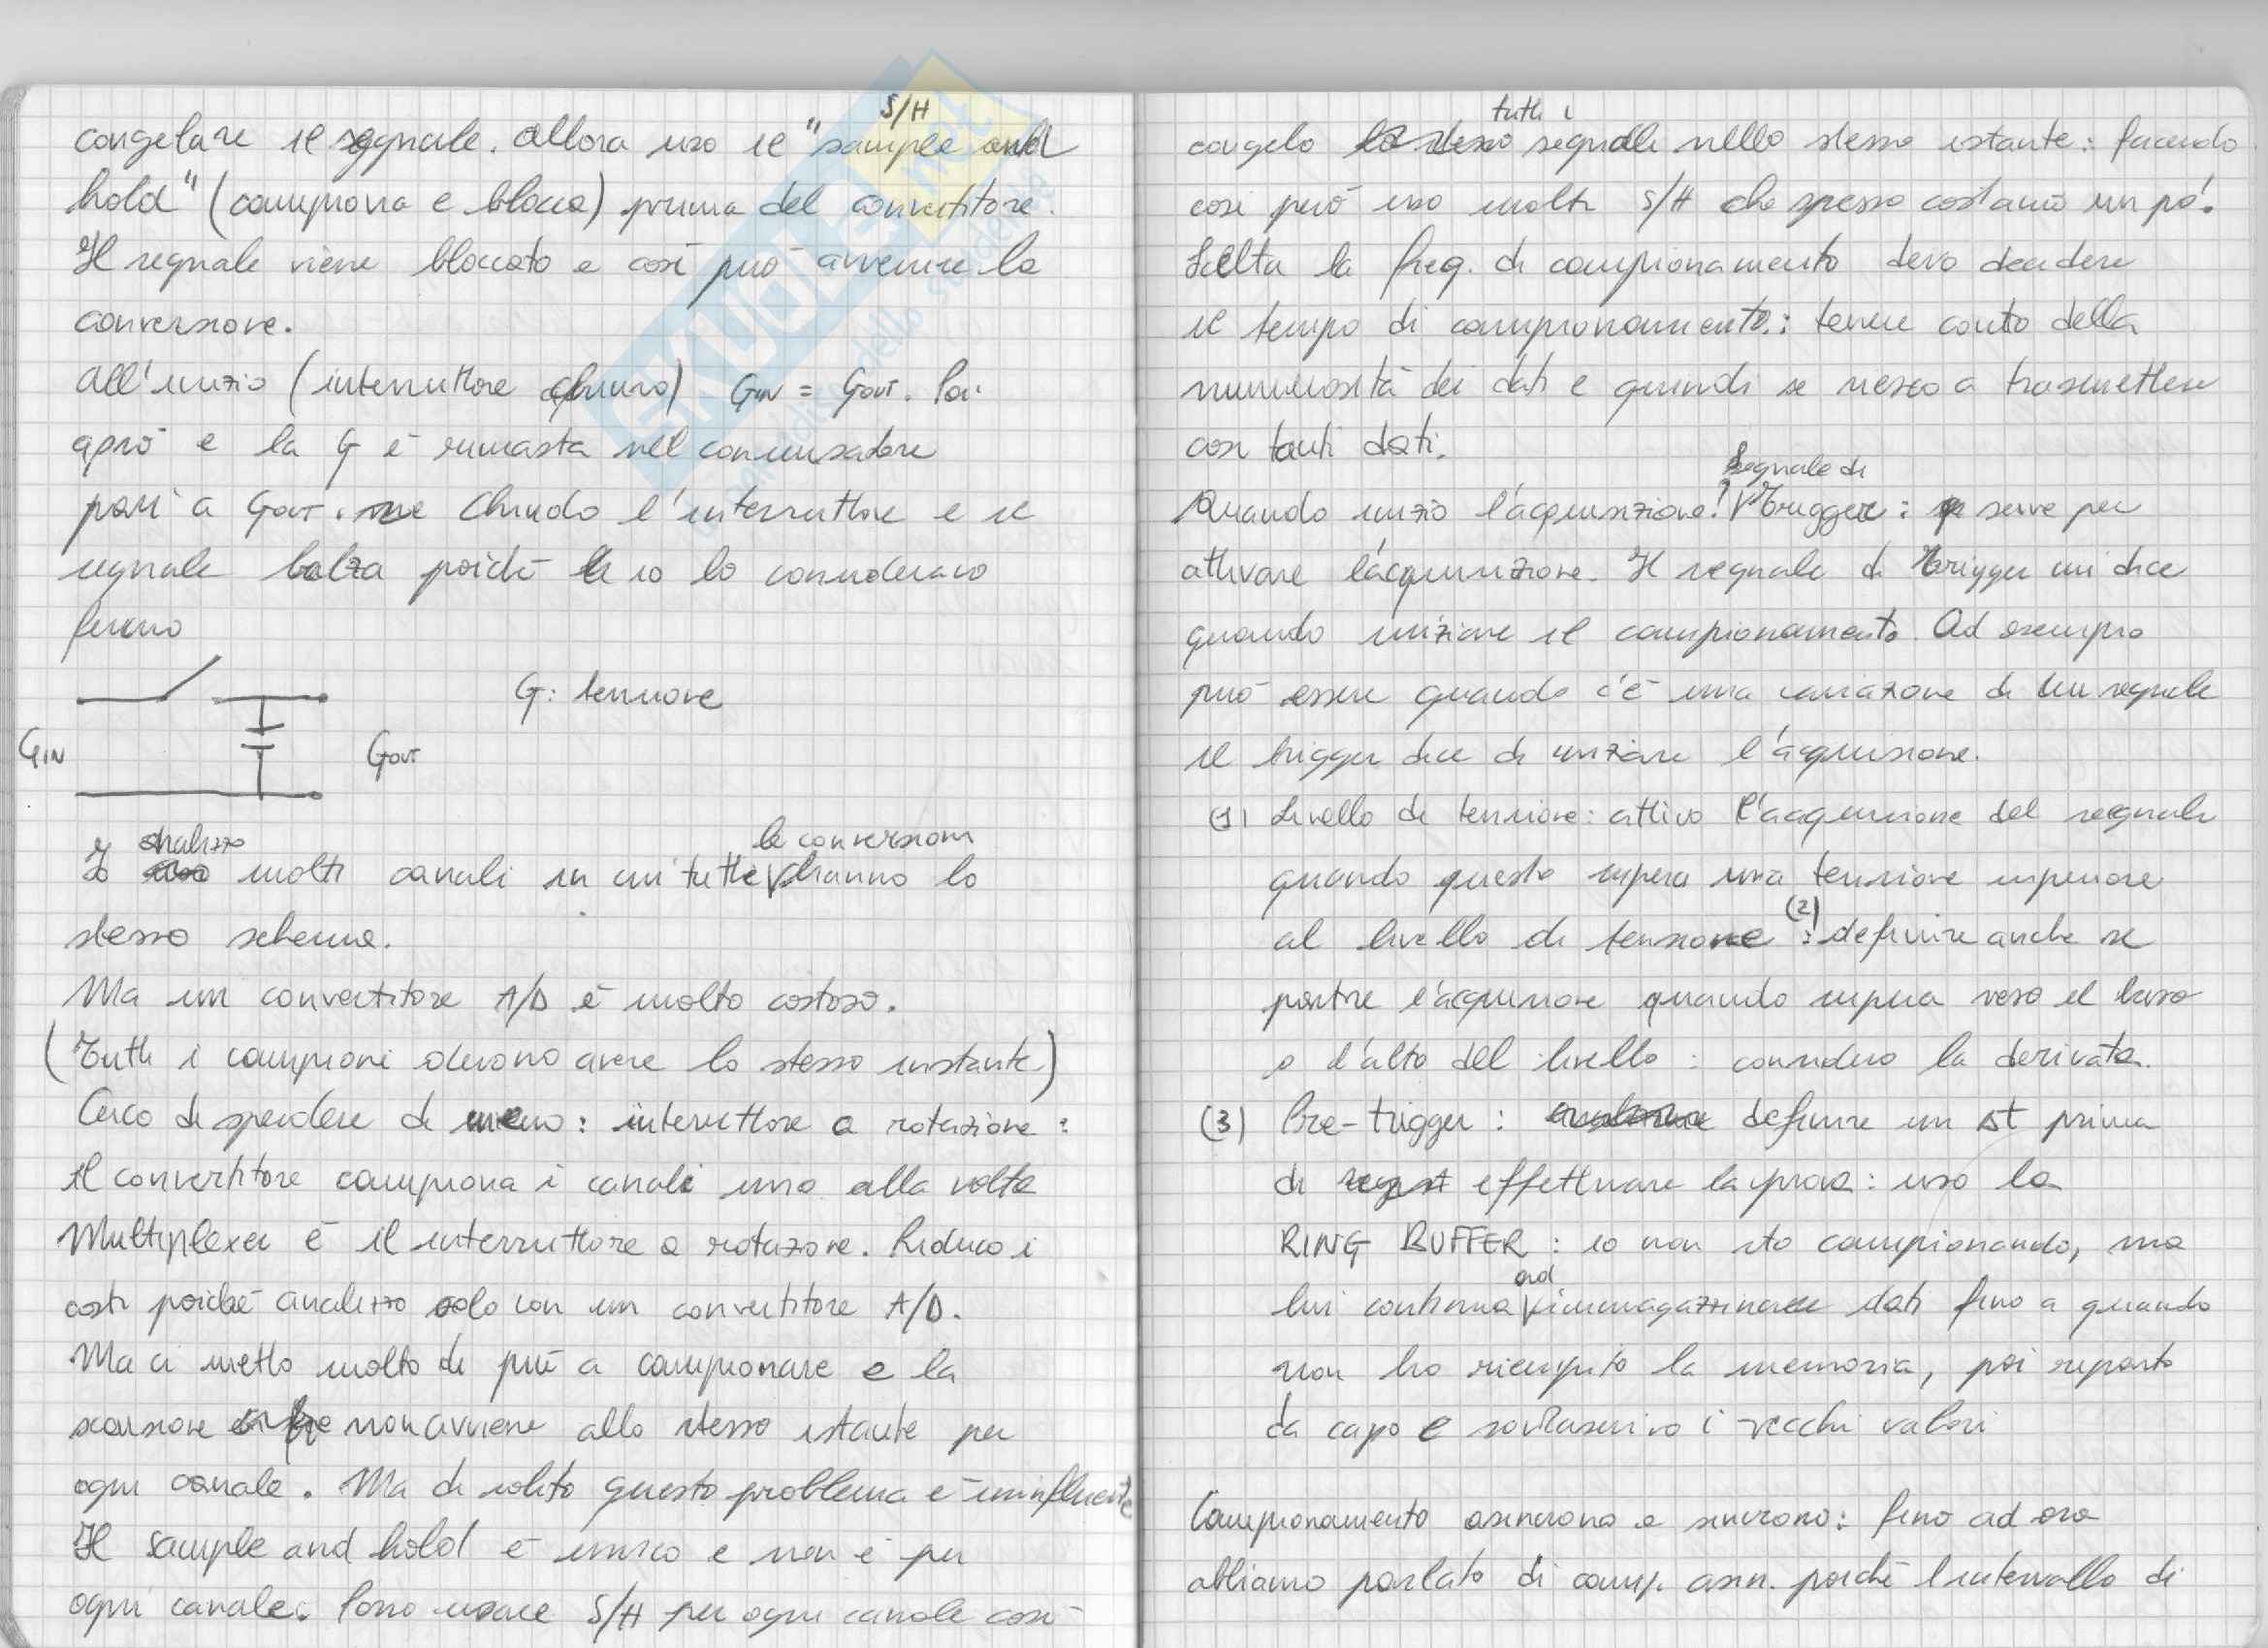 S/H
congelare il segnale. Allora uso il "sample and
hold" (campiona e blocca) prima del convertitore.
Il segnale viene bloccato e così può avvenire la
conversione.
All'inizio (interruttore chiuso) GIN = GOUT. Poi
apro e la G è rimasta nel condensatore
pari a GOUT. Chiudo l'interruttore e il
segnale balza poiché io lo consideravo
fermo
G: tensione
GIN
GOUT
analizzo
le conversioni
Io molti canali in cui tutte hanno lo
stesso schema.
Ma un convertitore A/D è molto costoso.
(Tutti i campioni devono avere lo stesso instante)
Cerco di spendere di meno: interruttore a rotazione:
il convertitore campiona i canali uno alla volta
Multiplexer è il interruttore a rotazione. Riduco i
costi poiché analizzo solo con un convertitore A/D.
Ma ci metto molto di più a campionare e la
scansione non avviene allo stesso istante per
ogni canale. Ma di solito questo problema è ininfluente
Il sample and hold è unico e non è per
ogni canale. Posso usare S/H per ogni canale così
tutti i
congelo segnali nello stesso istante: facendo
così però uso molti S/H che spesso costano un pó.
Scelta la freq. di campionamento devo decidere
il tempo di campionamento: tenere conto della
numerosità dei dati e quindi se riesco a trasmettere
così tanti dati.
segnale di
Quando inizio l'acquisizione? Trigger: serve per
attivare l'acquisizione. Il segnale di trigger mi dice
quando iniziare il campionamento. Ad esempio
può essere quando c'è una variazione di un segnale
il trigger dice di iniziare l'acquisione.
(1) Livello di tensione: attivo l'acquisione del segnale
quando questo supera una tensione superiore
al livello di tensione (2): definire anche se
partire l'acquisione quando supera verso il basso
o l'alto del livello: considero la derivata.
(3) Pre-trigger: definire un Δt prima
di effettuare la prova: uso la
RING BUFFER: io non sto campionando, ma
ad
lui continua immagazzinare dati fino a quando
non ho riempito la memoria, poi riparto
da capo e sovrascrivo i vecchi valori
Campionamento asincrono e sincrono: fino ad ora
abbiamo parlato di camp. asin. poiché l'intervallo di